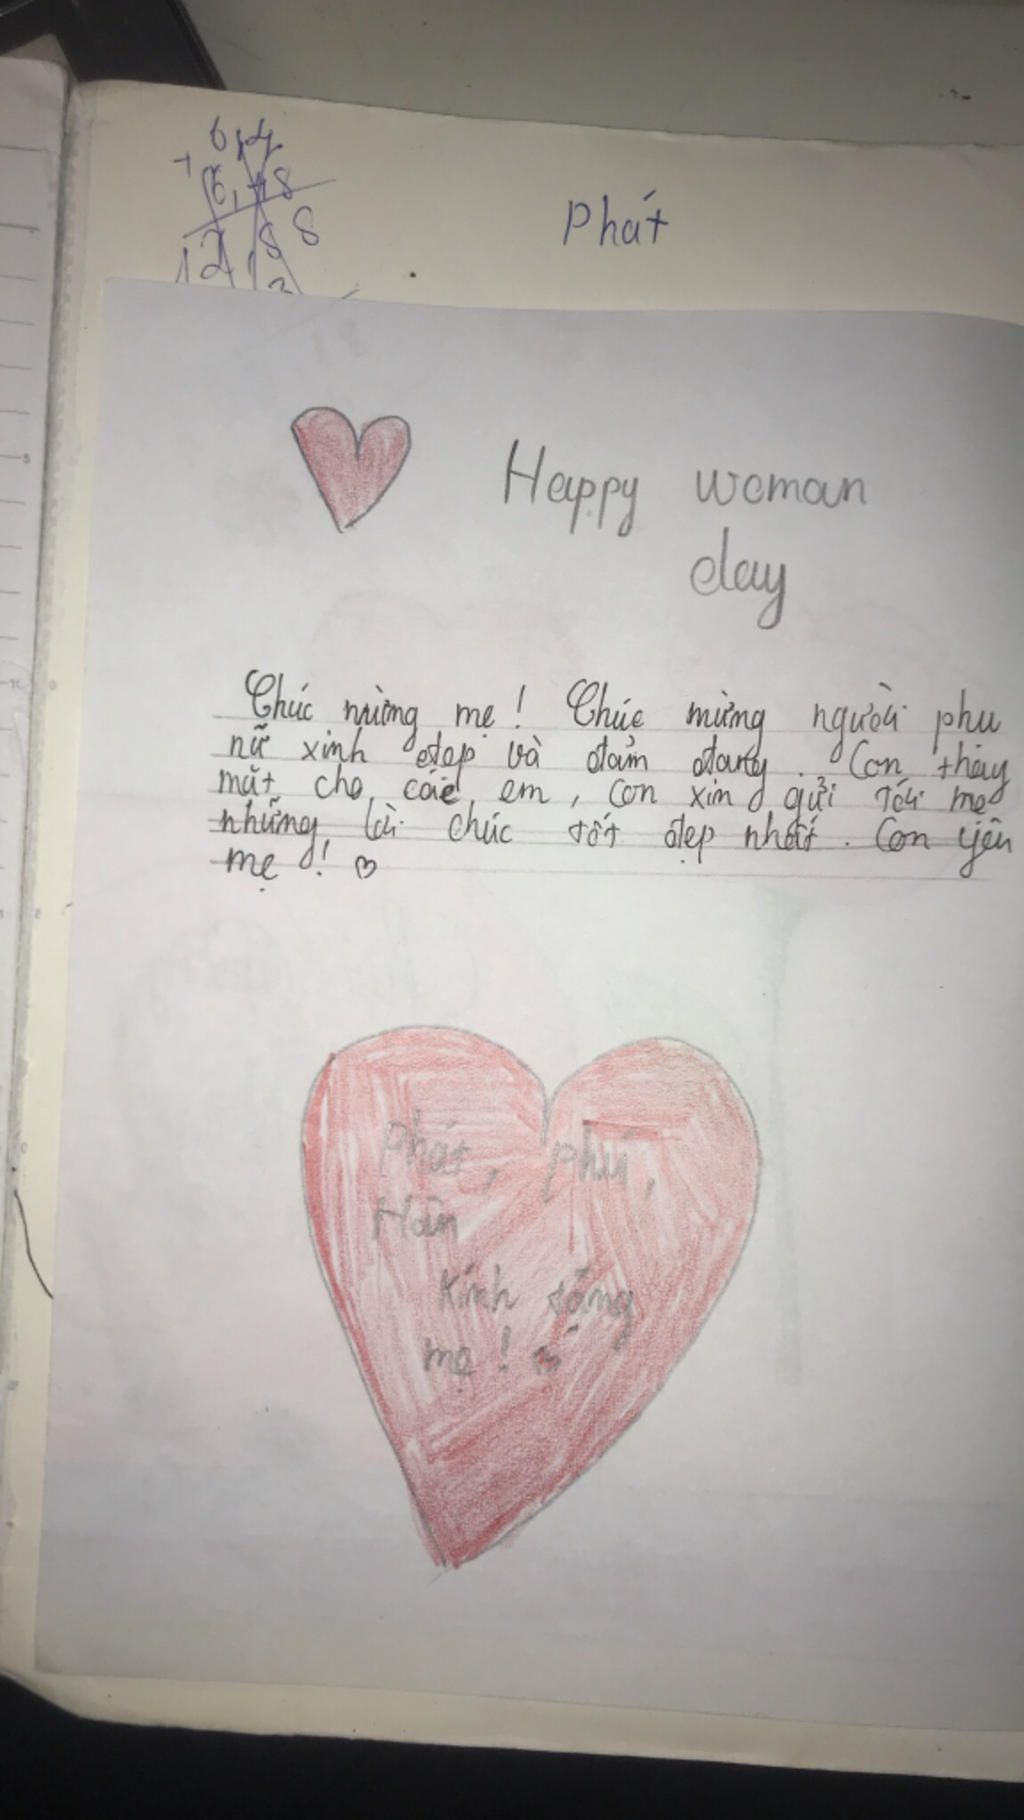 6,4
+
6,48
12,88
Phát
Happy woman
day
Chúc mừng mẹ! Chúc mừng người phu
nữ xinh đẹp và đảm đang. Con thay
mặt cho các em, con xin gửi tới mẹ
những lời chúc tốt đẹp nhất. Con yêu
mẹ!
Phát, phú,
Hân
Kính tặng
mẹ!